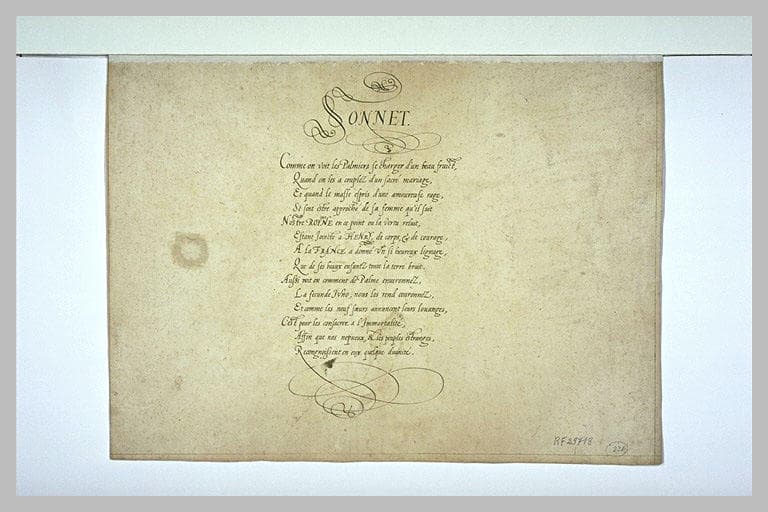 SONNET.
Comme on voit les Palmiers se charger d'un beau fruict,
Quand on les a couplez d'un sacre mariage,
Et quand le masle espris d'une amoureuse rage,
Se sent estre approché de sa femme qu'il suit
Nostre ROYNE en ce point ou la vertu reluit,
Estant Joincte a HENRY, de corps, & de courage,
A la FRANCE a donné Un si heureux lignage,
Que de ses beaux enfantz toute la terre bruit.
Aussi voit on comment de Palme couronnez,
La feconde JUNO, nous les rend couronnez,
Et comme les neuf sœurs annoncent leurs louanges,
C'est pour les consacrer a l'Immortalité,
Affin que nos nepueux, & les peuples estranges,
Recongnoissent en eux quelque divinite.
RF 29718